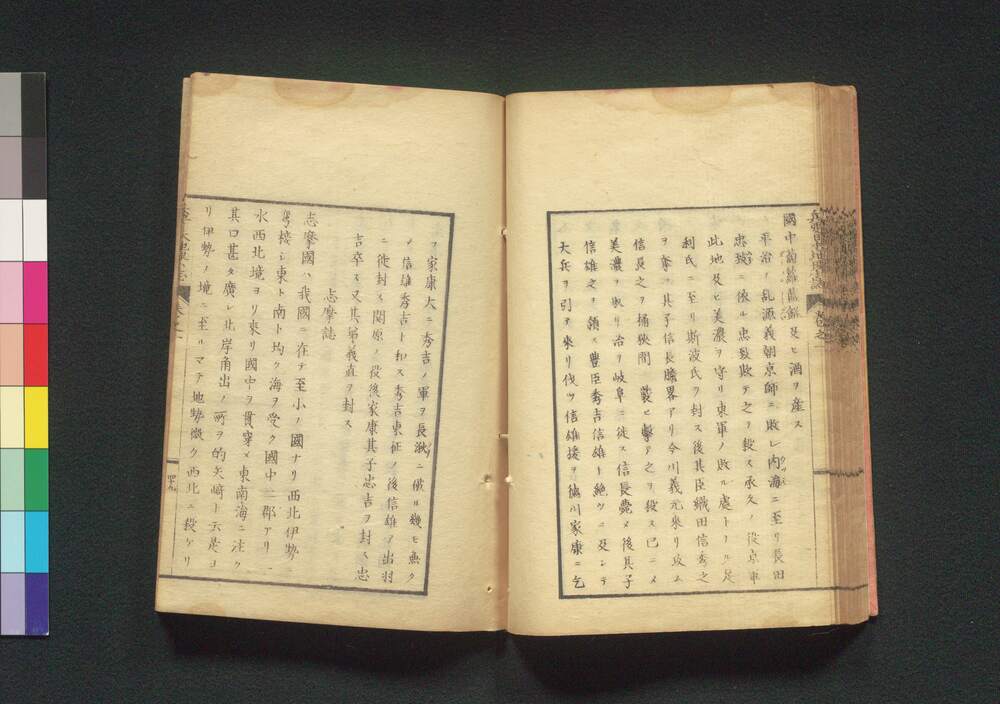 國中蘿蔔及ヒ酒ヲ産ス
平治ノ乱源義朝京師ニ敗レ内海ニ至リ長田
忠致ニ依ル忠致欺テ之ヲ殺ス承久ノ役京軍
此地及ヒ美濃ヲ守リ東軍ノ敗ル處トナル足
利氏ニ至リ斯波氏ヲ封ス後其臣織田信秀之
ヲ奪フ其子信長膽畧アリ今川義元來リ攻ム
信長之ヲ桶狹間ニ襲ヒ擊ア之ヲ殺ス已ニメ
美濃ヲ取リ治ヲ岐阜ニ徙ス信長薨メ後其子
信雄之ヲ領ス豊臣秀吉信雄ト絶ツニ及ンテ
大兵ヲ引テ來リ伐ツ信雄援ヲ德川家康ニ乞
フ家康大ニ秀吉ノ軍ヲ長湫ニ破ル幾モ無ク
メ信雄秀吉ト和ス秀吉東征ノ後信雄ヲ出羽
ニ徙封ス関原ノ役後家康其子忠吉ヲ封ス忠
吉卒ス又其弟義直ヲ封ス
志摩誌
志摩國ハ我國ニ在テ至小ノ國ナリ西北伊勢ニ
彎接シ東ト南ト均ク海ヲ受ク國中二郡アリ一
水西北境ヨリ來リ國中ヲ貫穿メ東南海ニ注ク
其口甚タ廣シ北岸角出ノ所ヲ的矢崎ト云是ヨ
リ伊勢ノ境ニ至ルマテ地勢微ク西北ニ殺ケリ